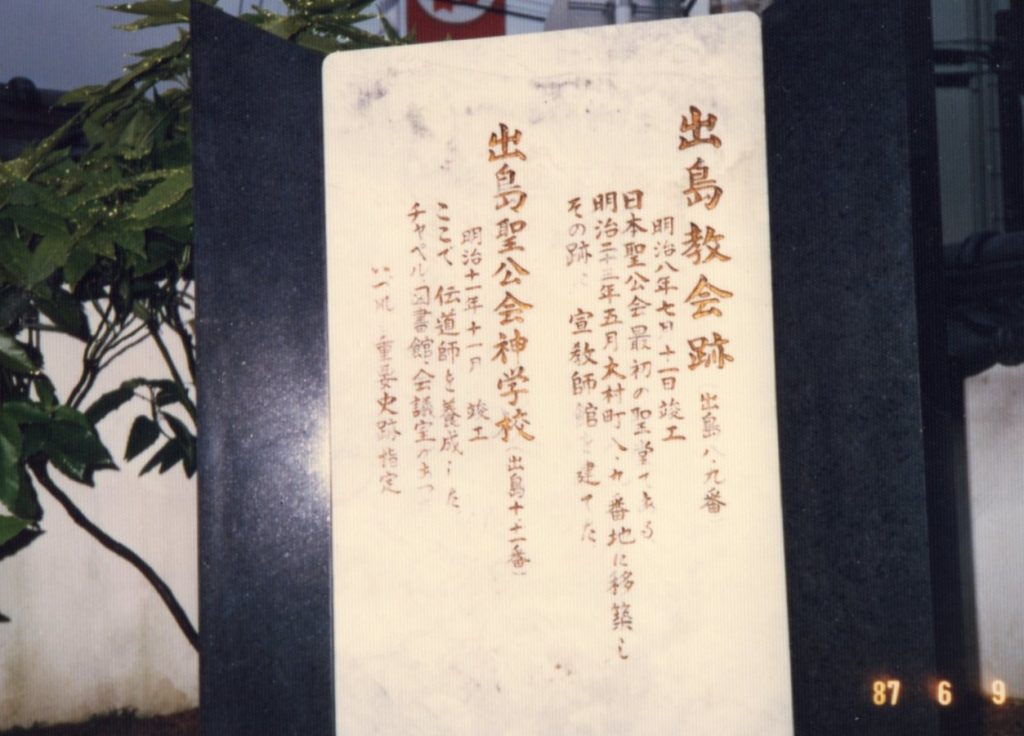 出島教会跡（出島八、九番）
明治八年七月十一日竣工
日本聖公会最初の聖堂である
明治二十三年五月大村町八、九番地に移築し
その跡に宣教師館を建てた
出島聖公会神学校（出島十、十一番）
明治十一年十一月 竣工
ここで 伝道師を養成した
チャペル、図書館、会議室があった
重要史跡指定
87 6 9